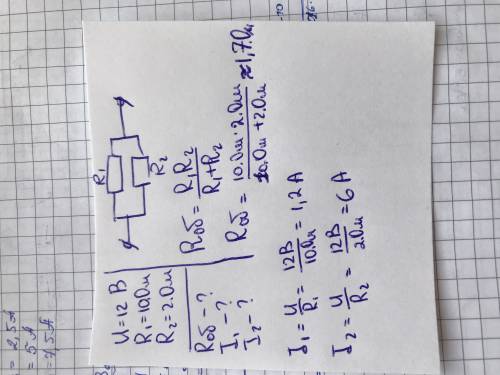 U=12 В
R₁=10.Ом
R₂=2.Ом
Rоб - ?
I₁ - ?
I₂ - ?
R₁
R₂
Rоб = R₁R₂ / R₁+R₂
Rоб = 10.Ом·2.Ом / 10.Ом+2.Ом ≈1,7.Ом
I₁ = U / R₁ = 12В / 10.Ом = 1,2 А
I₂ = U / R₂ = 12В / 2.Ом = 6 А
= 2,5 А
= 5 А
= 7,5 А